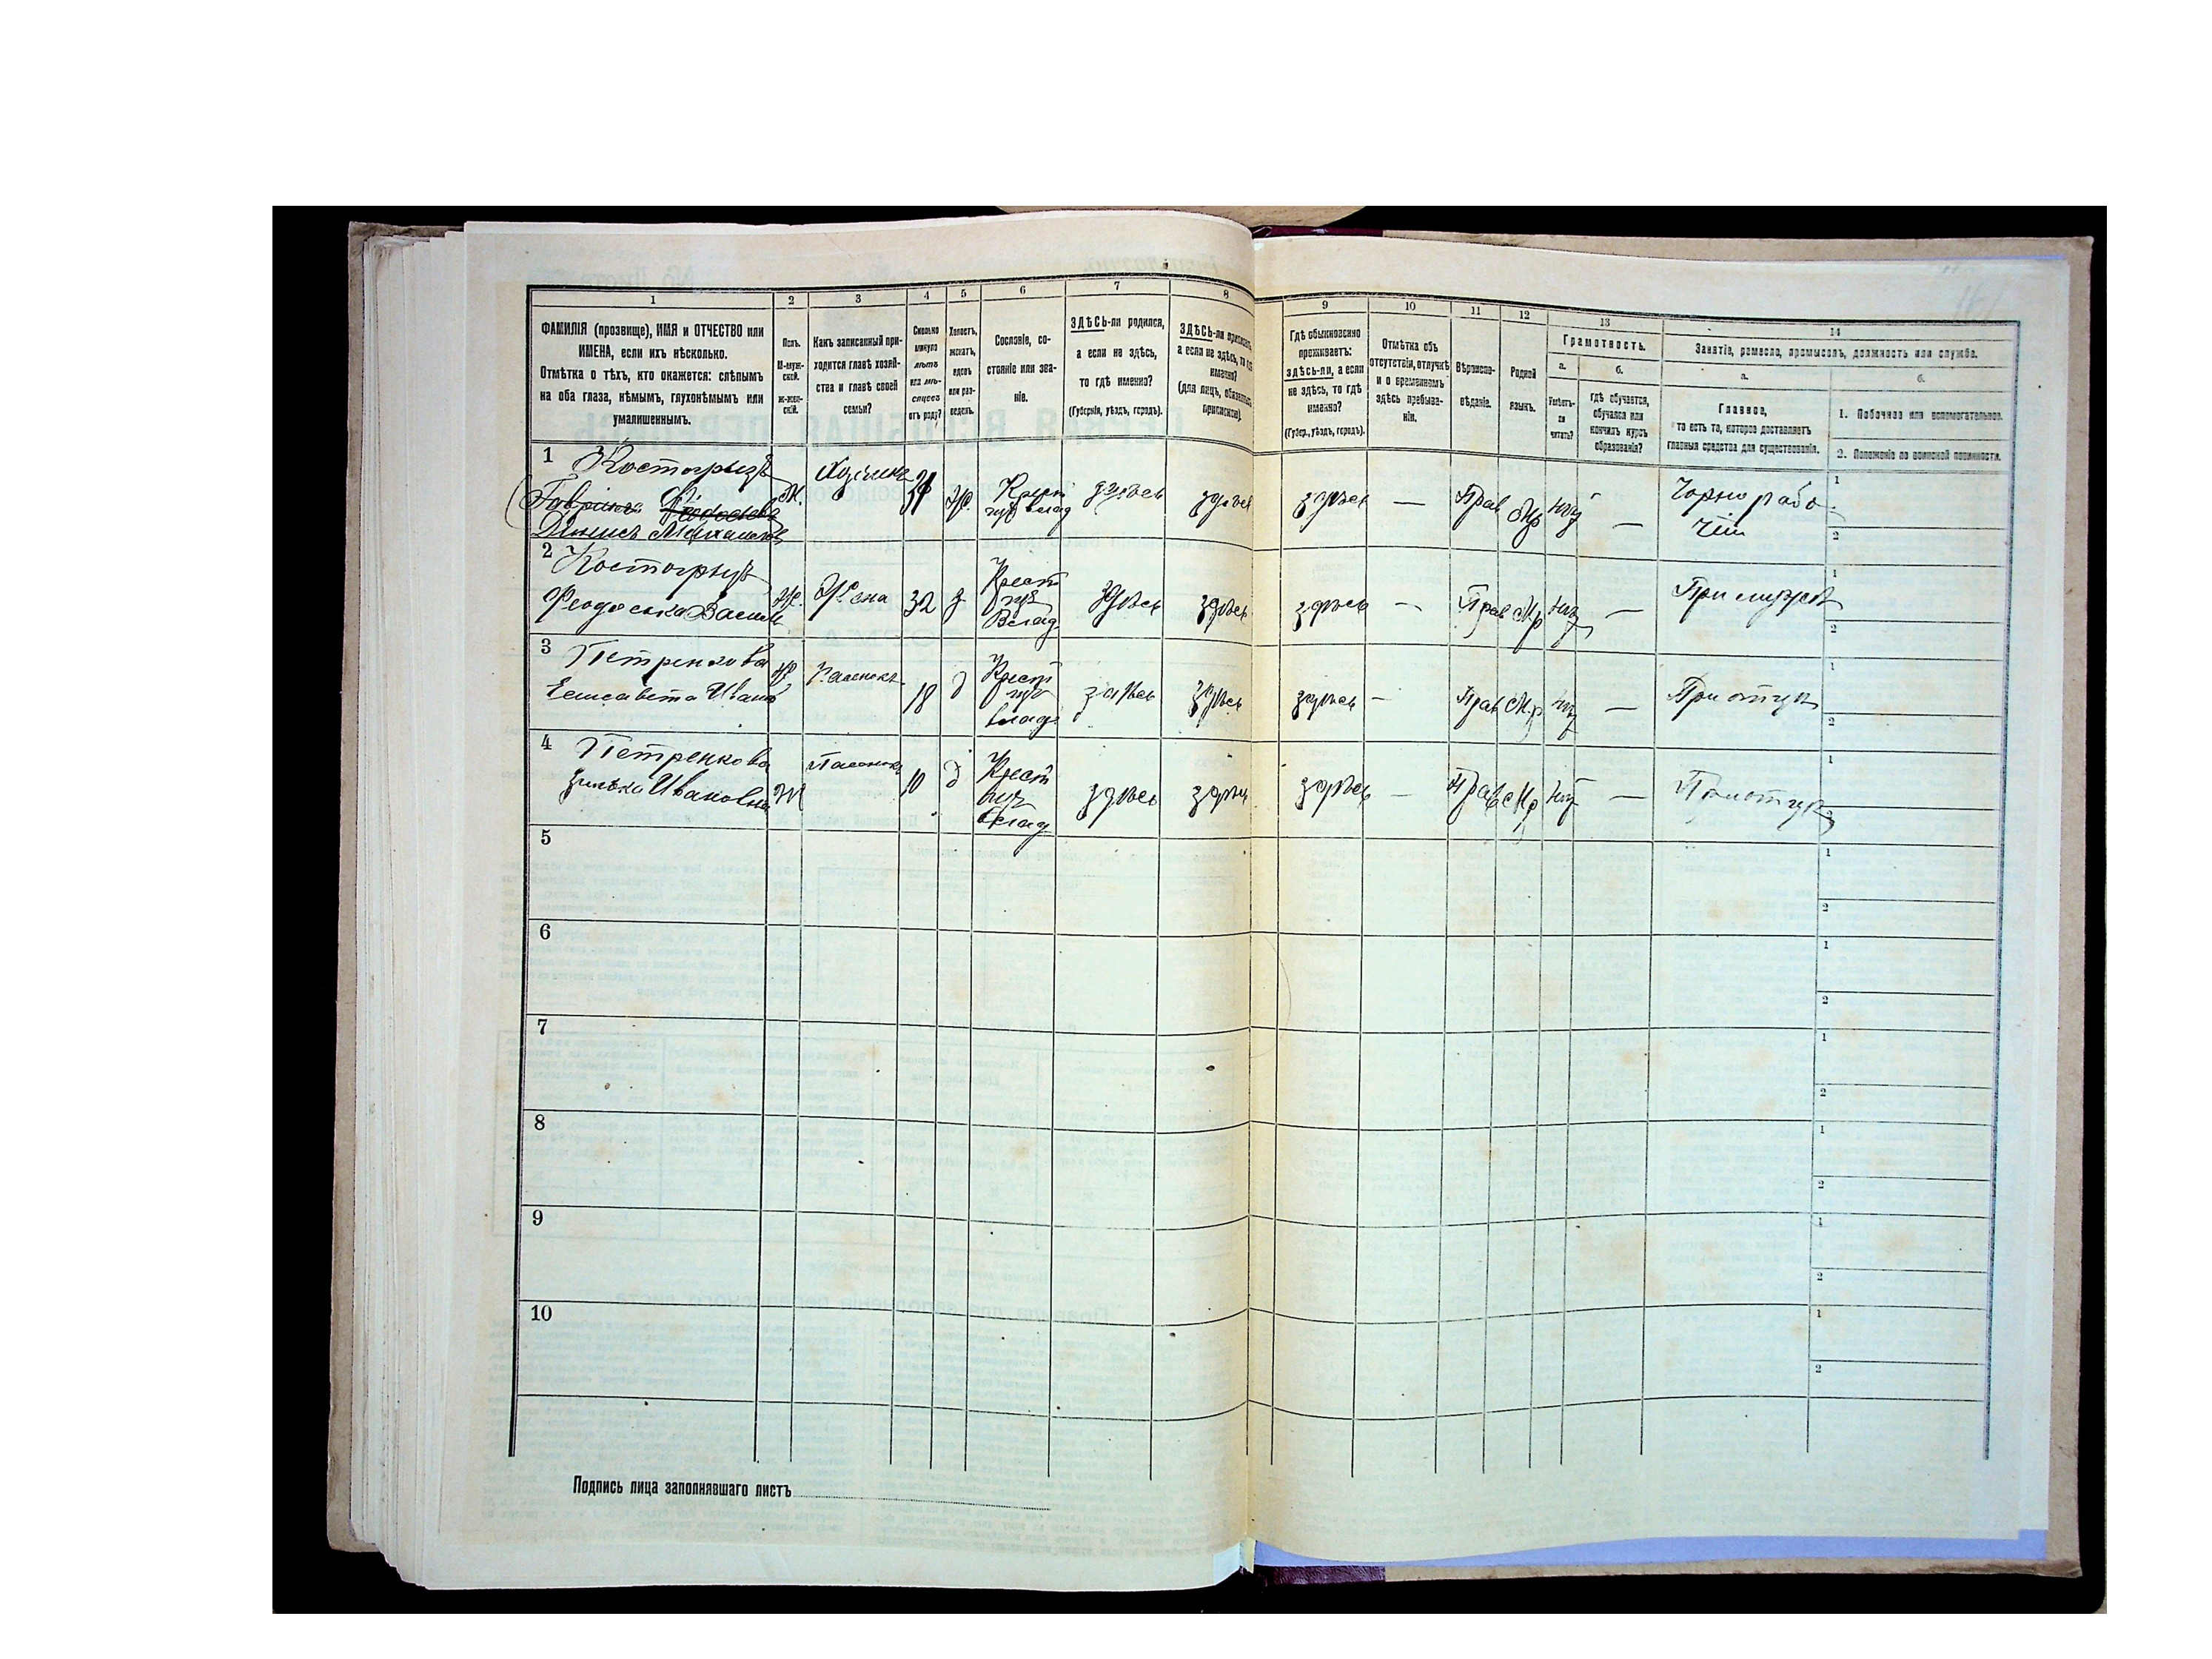 1 2 3 4 5 6 7 8 9 10 11 12 13 14
ФАМИЛІЯ (прозвище), ИМЯ и ОТЧЕСТВО или
ИМЕНА, если ихъ нѣсколько.
Отмѣтка о тѣхъ, кто окажется: слѣпымъ
на оба глаза, нѣмымъ, глухонѣмымъ или
умалишеннымъ.
Полъ.
М-муж-
ской.
ж-жен-
скій.
Какъ записанный при-
ходится главѣ хозяй-
ства и главѣ своей
семьи?
Сколько
минуло
лѣтъ
или мѣ-
сяцевъ
отъ роду?
Холостъ,
женатъ,
вдовъ
или раз-
веденъ.
Сословіе, со-
стояніе или зва-
ніе.
ЗДѢСЬ-ли родился,
а если не здѣсь,
то гдѣ именно?
(Губернія, уѣздъ, городъ).
ЗДѢСЬ-ли приписанъ,
а если не здѣсь, то гдѣ
именно?
(для лицъ, обязанныхъ
припиской).
Гдѣ обыкновенно
проживаетъ:
здѣсь-ли, а если
не здѣсь, то гдѣ
именно?
(Губер., уѣздъ, городъ).
Отмѣтка объ
отсутствіи, отлучкѣ
и о временномъ
здѣсь пребыва-
ніи.
Вѣроиспо-
вѣданіе.
Родной
языкъ.
Грамотность.
а.
Умѣетъ-
ли
читать?
б.
гдѣ обучается,
обучался или
кончилъ курсъ
образованія?
Занятіе, ремесло, промыселъ, должность или служба.
а.
Главное,
то есть то, которое доставляетъ
главныя средства для существованія.
б.
1. Побочное или вспомогательное.
2. Положеніе по воинской повинности.
1 Костогрызъ
Денисъ
М. Хозяинъ Ж. Крест здѣсь здѣсь здѣсь — Прав Мр нѣт — Чорно рабо
чій
1
2
2 Костогрызъ
Феодоська Васил Ж. Жена 32 з Крест
Влад здѣсь здѣсь здѣсь — Прав Мр — При мужѣ
1
2
3 Петренкова
Елисавета Иванов 18 д Крест
влад здѣсь здѣсь здѣсь — Прав Мр — При отцѣ
1
2
4 Петренкова
Ивановна Ж 10 д Крест
влад здѣсь здѣсь здѣсь — Прав Мр — При отцѣ
1
2
5
1
2
6
1
2
7
1
2
8
1
2
9
1
2
10
1
2
Подпись лица заполнявшаго листъ